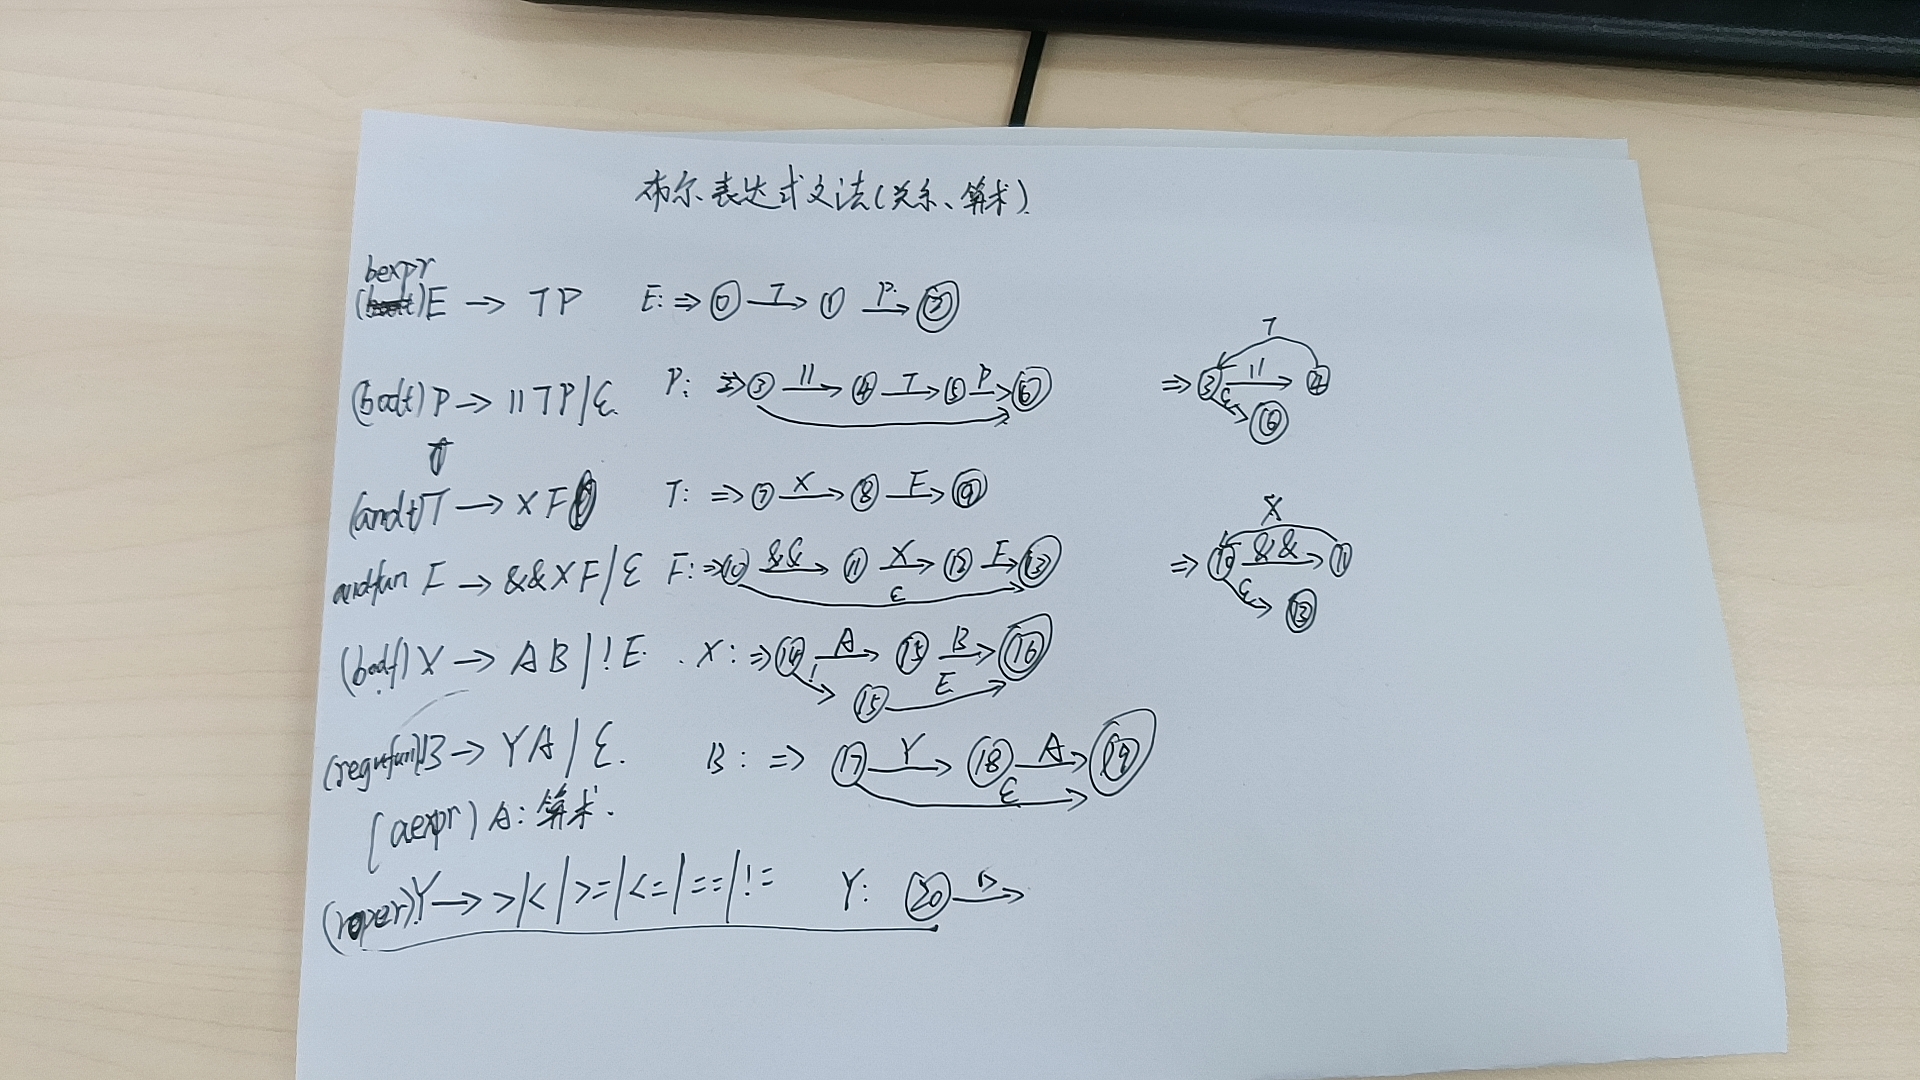 布尔表达式文法(关系、算术).
bexpr
E → TP E: ⇒ 0 T→ 1 P→ 2
T
P → || TP | ε. P: ⇒ 3 ||→ 4 T→ 5 P→ 6 ⇒ 3 ||→ 4
ε 6
(andt) T → XF T: ⇒ 7 X→ 8 F→ 9
X
andfun F → &&XF | ε F: ⇒ 10 &&→ 11 X→ 12 F→ 13 ⇒ 10 &&→ 11
ε ε 13
X → AB | !E. X: ⇒ 14 A→ 15 B→ 16
! 15 E
B → YA | ε. B: ⇒ 17 Y→ 18 A→ 19
ε
(aexpr) A: 算术.
(roper) Y → > | < | >= | <= | == | != Y: 20 →